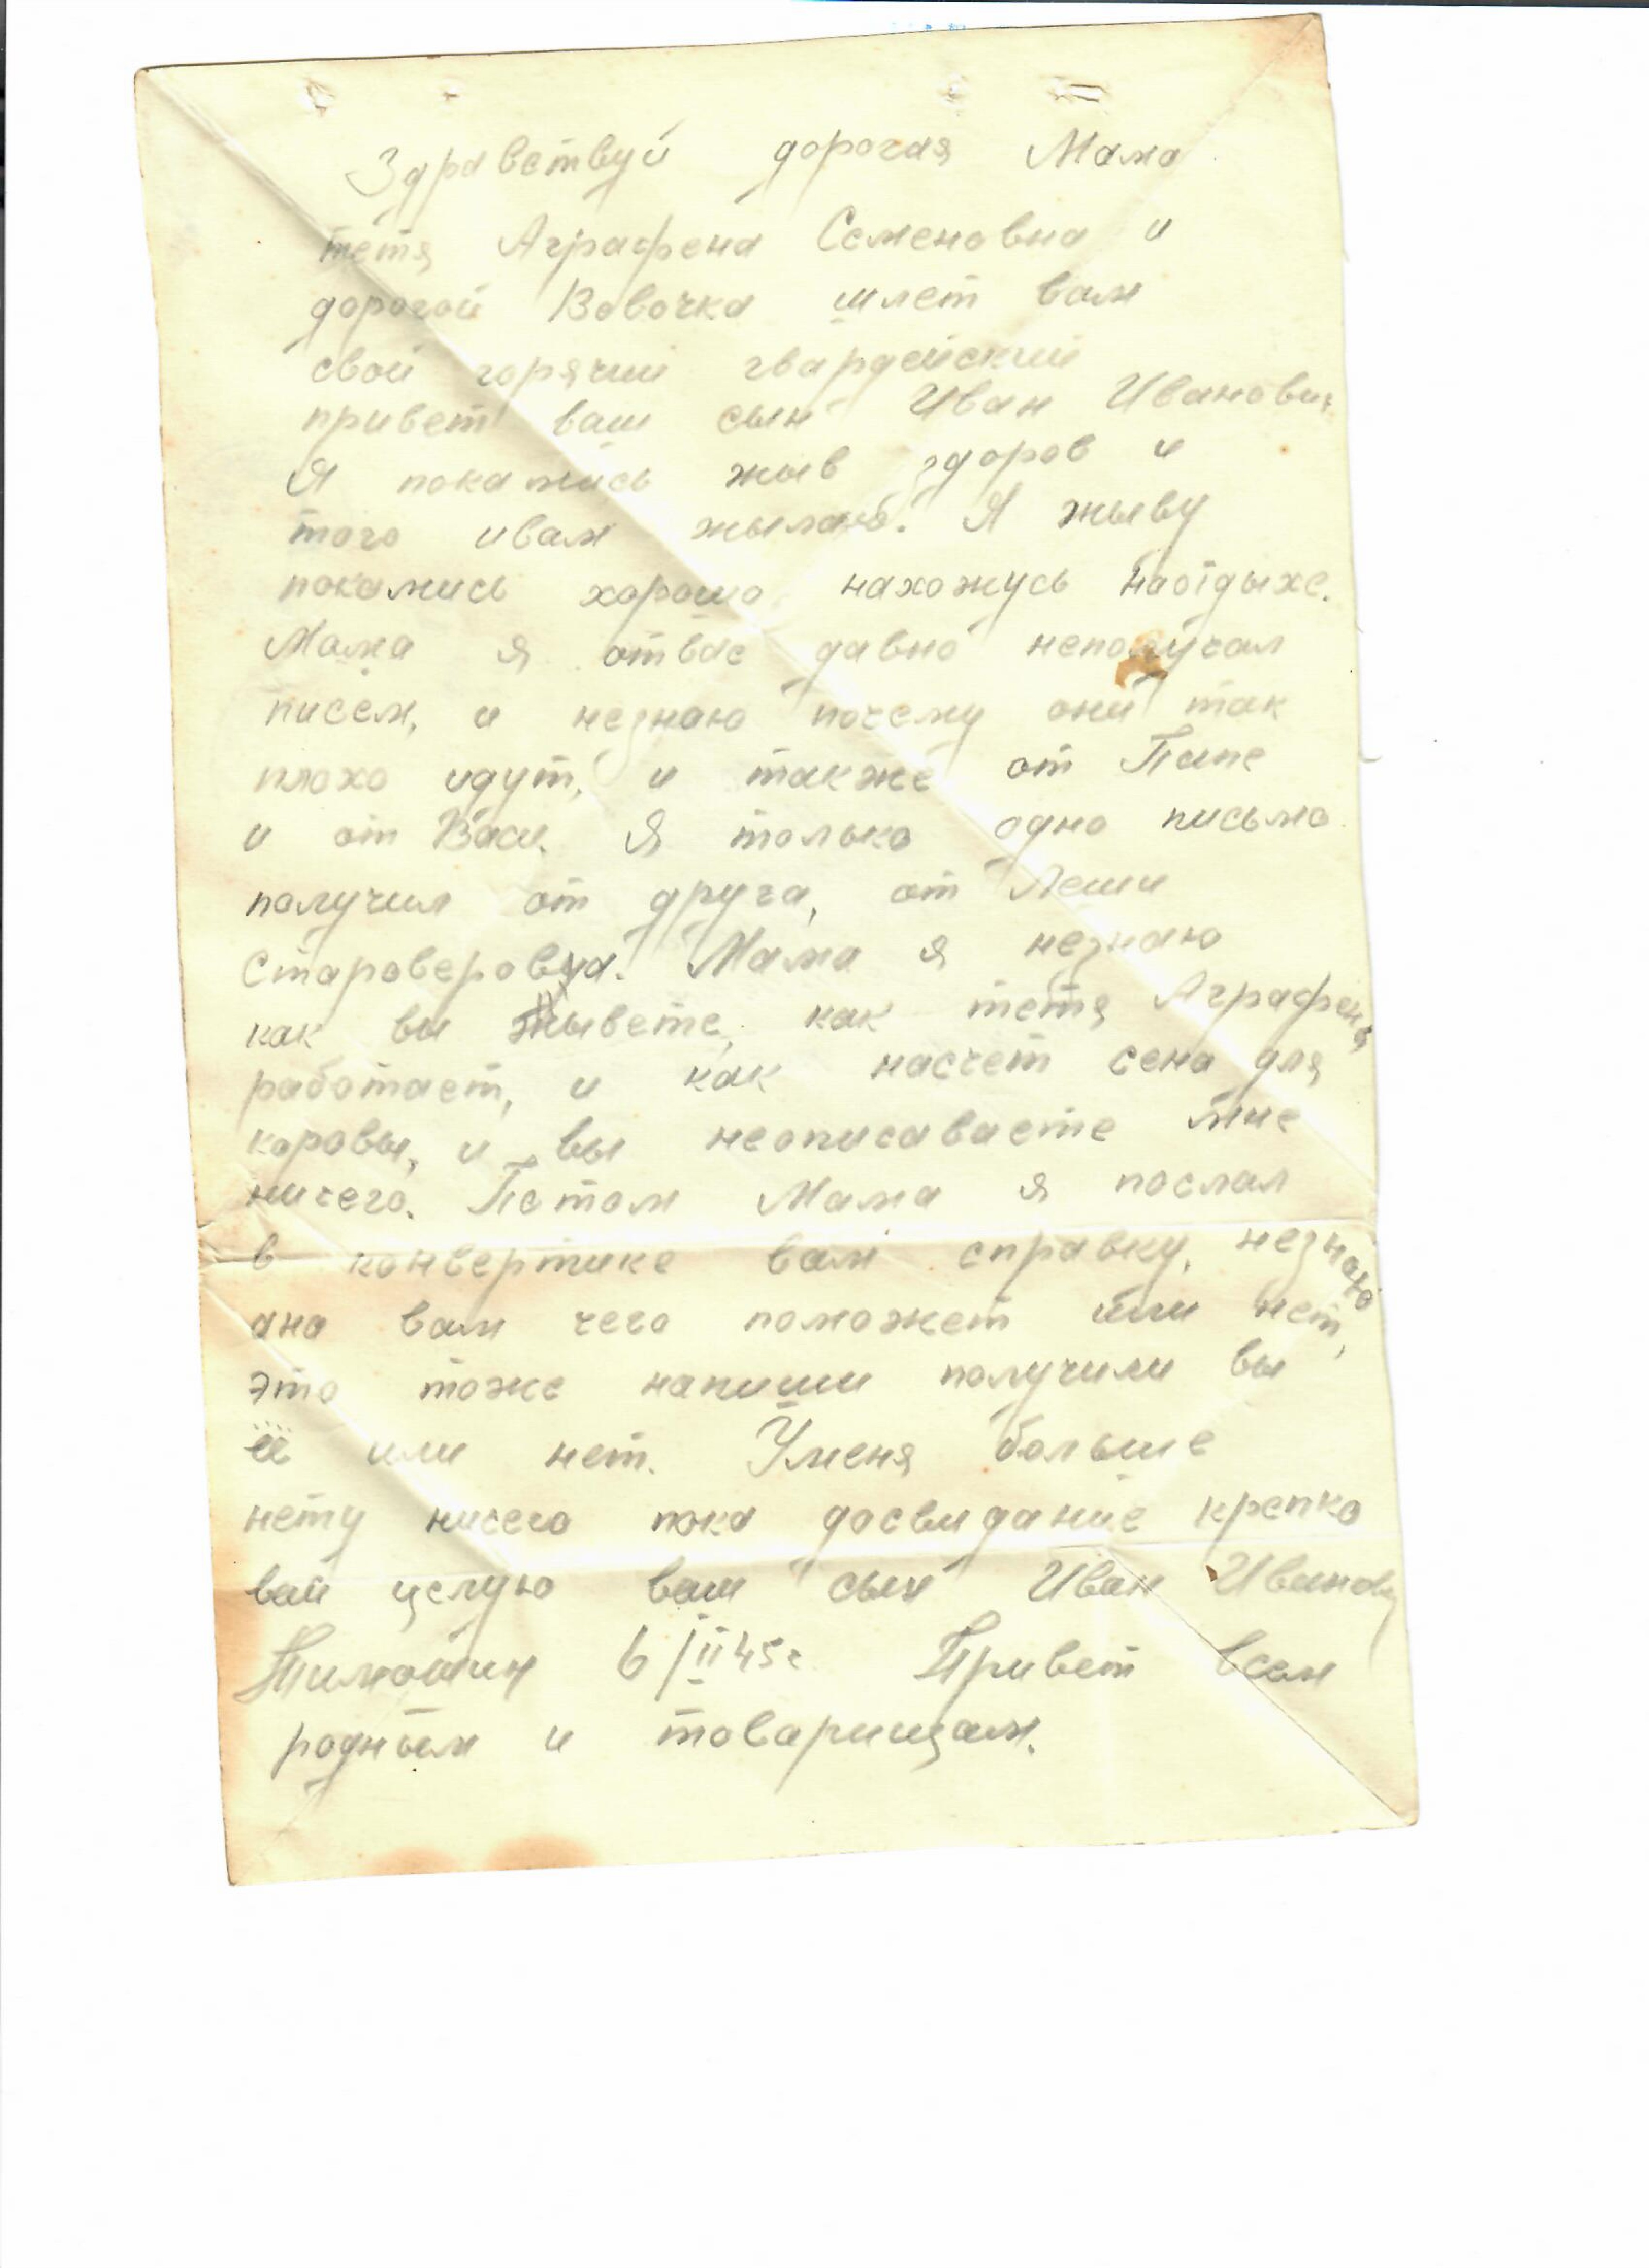 Здравствуй дорогая Мама
тетя Аграфена Семеновна и
дорогой Вовочка шлет вам
свой горячий гвардейский
привет ваш сын Иван Иванович
Я покамись жыв здоров и
того ивам жылаю. Я жыву
покамись хорошо нахожусь наотдыхе.
Мама я отвас давно неполучал
писем, и незнаю почему они так
плохо идут, и также от Папе
и от Васи. Я только одно письмо
получил от друга, от Леши
Староверова. Мама я незнаю
как вы жывете, как тетя Аграфена
работает, и как насчет сена для
коровы, и вы неописаваете мне
ничего. Потом Мама я послал
в конвертике вам справку, незнаю
она вам чего поможет или нет,
это тоже напиши получили вы
её или нет. Уменя больше
нету ничего пока досвидание крепко
вай целую ваш сын Иван Иванович
Тимошин 6/II 45г Привет всем
родным и товарищам.